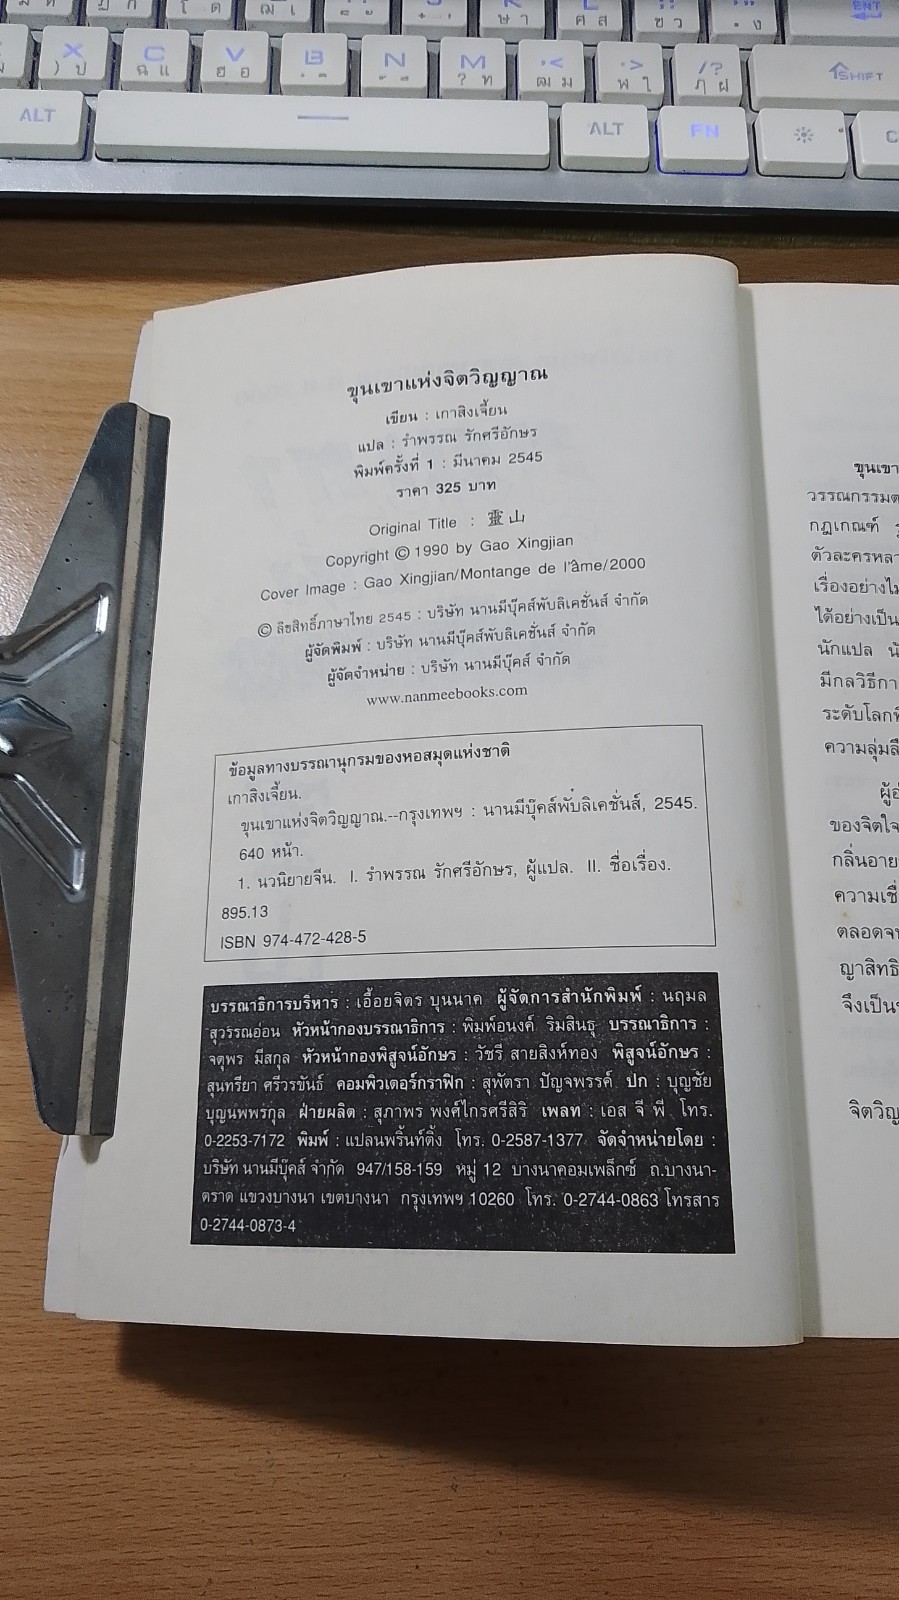 X
C
V
B
N
M
ALT
ALT
FN
SHIFT
ขุนเขาแห่งจิตวิญญาณ
เขียน : เกาสิงเจี้ยน
แปล : รำพรรณ รักศรีอักษร
พิมพ์ครั้งที่ 1 : มีนาคม 2545
ราคา 325 บาท
Original Title : 靈山
Copyright © 1990 by Gao Xingjian
Cover Image : Gao Xingjian/Montange de l'âme/2000
© ลิขสิทธิ์ภาษาไทย 2545 : บริษัท นานมีบุ๊คส์พับลิเคชั่นส์ จำกัด
ผู้จัดพิมพ์ : บริษัท นานมีบุ๊คส์พับลิเคชั่นส์ จำกัด
ผู้จัดจำหน่าย : บริษัท นานมีบุ๊คส์ จำกัด
www.nanmeebooks.com
ข้อมูลทางบรรณานุกรมของหอสมุดแห่งชาติ
เกาสิงเจี้ยน.
ขุนเขาแห่งจิตวิญญาณ.--กรุงเทพฯ : นานมีบุ๊คส์พับลิเคชั่นส์, 2545.
640 หน้า.
1. นวนิยายจีน. I. รำพรรณ รักศรีอักษร, ผู้แปล. II. ชื่อเรื่อง.
895.13
ISBN 974-472-428-5
บรรณาธิการบริหาร : เอื้อยจิตร บุนนาค ผู้จัดการสำนักพิมพ์ : นฤมล
สุวรรณอ่อน หัวหน้ากองบรรณาธิการ : พิมพ์อนงค์ ริมสินธุ บรรณาธิการ :
จตุพร มีสกุล หัวหน้ากองพิสูจน์อักษร : วัชรี สายสิงห์ทอง พิสูจน์อักษร :
สุนทรียา ศรีวรขันธ์ คอมพิวเตอร์กราฟิก : สุพัตรา ปัญจพรรค์ ปก : บุญชัย
บุญนพพรกุล ฝ่ายผลิต : สุภาพร พงศ์ไกรศรีสิริ เพลท : เอส จี พี โทร.
0-2253-7172 พิมพ์ : แปลนพริ้นท์ติ้ง โทร. 0-2587-1377 จัดจำหน่ายโดย :
บริษัท นานมีบุ๊คส์ จำกัด 947/158-159 หมู่ 12 บางนาคอมเพล็กซ์ ถ.บางนา-
ตราด แขวงบางนา เขตบางนา กรุงเทพฯ 10260 โทร. 0-2744-0863 โทรสาร
0-2744-0873-4
ขุนเขา
วรรณกรรม
กฎเกณฑ์
ตัวละครหลา
เรื่องอย่างไม
ได้อย่างเป็น
นักแปล
มีกลวิธีกา
ระดับโลก
ความลุ่มลึ
ของจิตใจ
กลิ่นอาย
ความเชื่
ตลอดจน
ญาสิทธิ
จึงเป็น
จิตวิญ